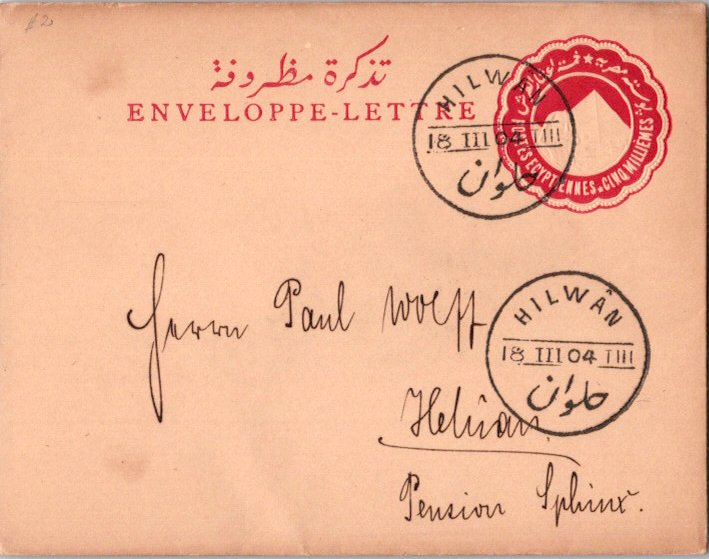 تذكرة مظروفة
ENVELOPPE-LETTRE
POSTES EGYPTIENNES. CINQ MILLIEMES
HILWÂN
18 III 04 TIII
حلوان
Herrn Paul Wolff
HILWÂN
18 III 04 TIII
حلوان
Heluan.
Pension Sphinx.